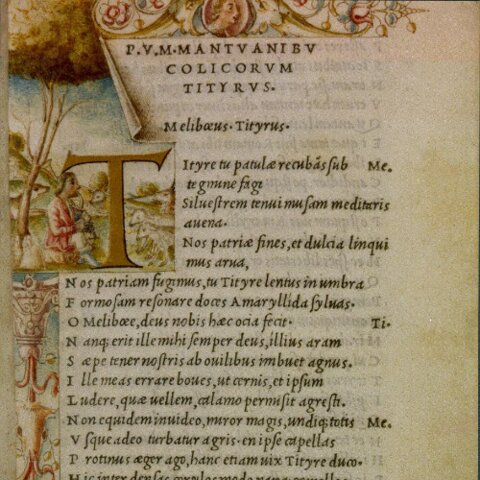 P. V. M. MANTVANI BV
COLICORVM
TITYRVS.
Melibœus. Tityrus.
Tityre tu patulæ recubãs sub Me.
tegmine fagi
Siluestrem tenui musam meditaris
auena.
Nos patriæ fines, et dulcia linqui
mus arua,
Nos patriam fugimus, tu Tityre lentus in umbra
Formosam resonare doces Amaryllida syluas.
O Melibœe, deus nobis hæc ocia fecit. Ti.
Nanq; erit ille mihi semper deus, illius aram
Sæpe tener nostris ab ouilibus imbuet agnus.
Ille meas errare boues, ut cernis, et ipsum
Ludere, quæ uellem, calamo permisit agresti.
Non equidem inuideo, miror magis, undiq; totis Me.
Vsque adeo turbatur agris. en ipse capellas
Protinus æger ago, hanc etiam uix Tityre duco.
Hic inter densas corylos modo nanq; gemellos